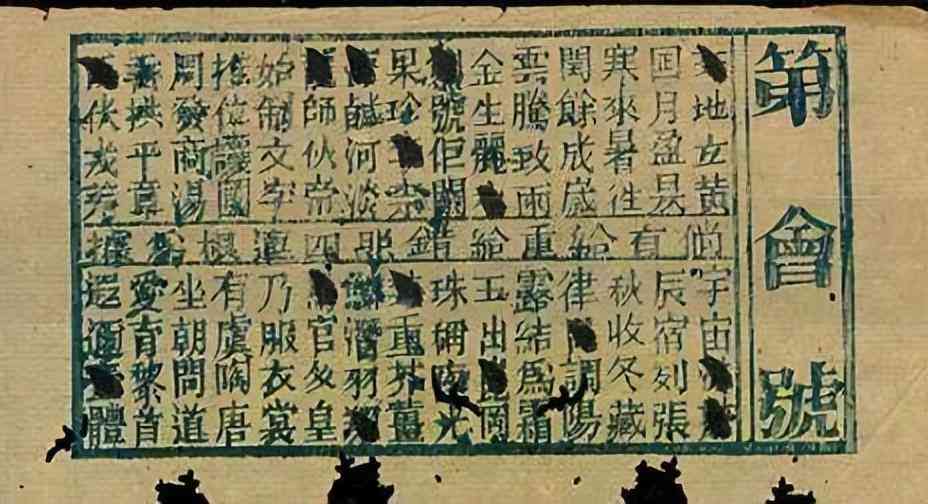 第會號
地玄黃
月盈昃
寒來暑往
閏餘成歲
雲騰致雨
金生麗
號佢闕
果珍柰
鹹河淡
師伙帝
始制文字
推位讓國
周發商湯
拱平章
伏戎羌
倘有給重給錯照四根為據
宇宙
辰宿列張
秋收冬藏
律調陽
露結爲霜
玉出岡
珠稱夜光
重芥薑
鱗潛羽翔
官人皇
乃服衣裳
有虞陶唐
坐朝問道
愛育黎首
遐邇體